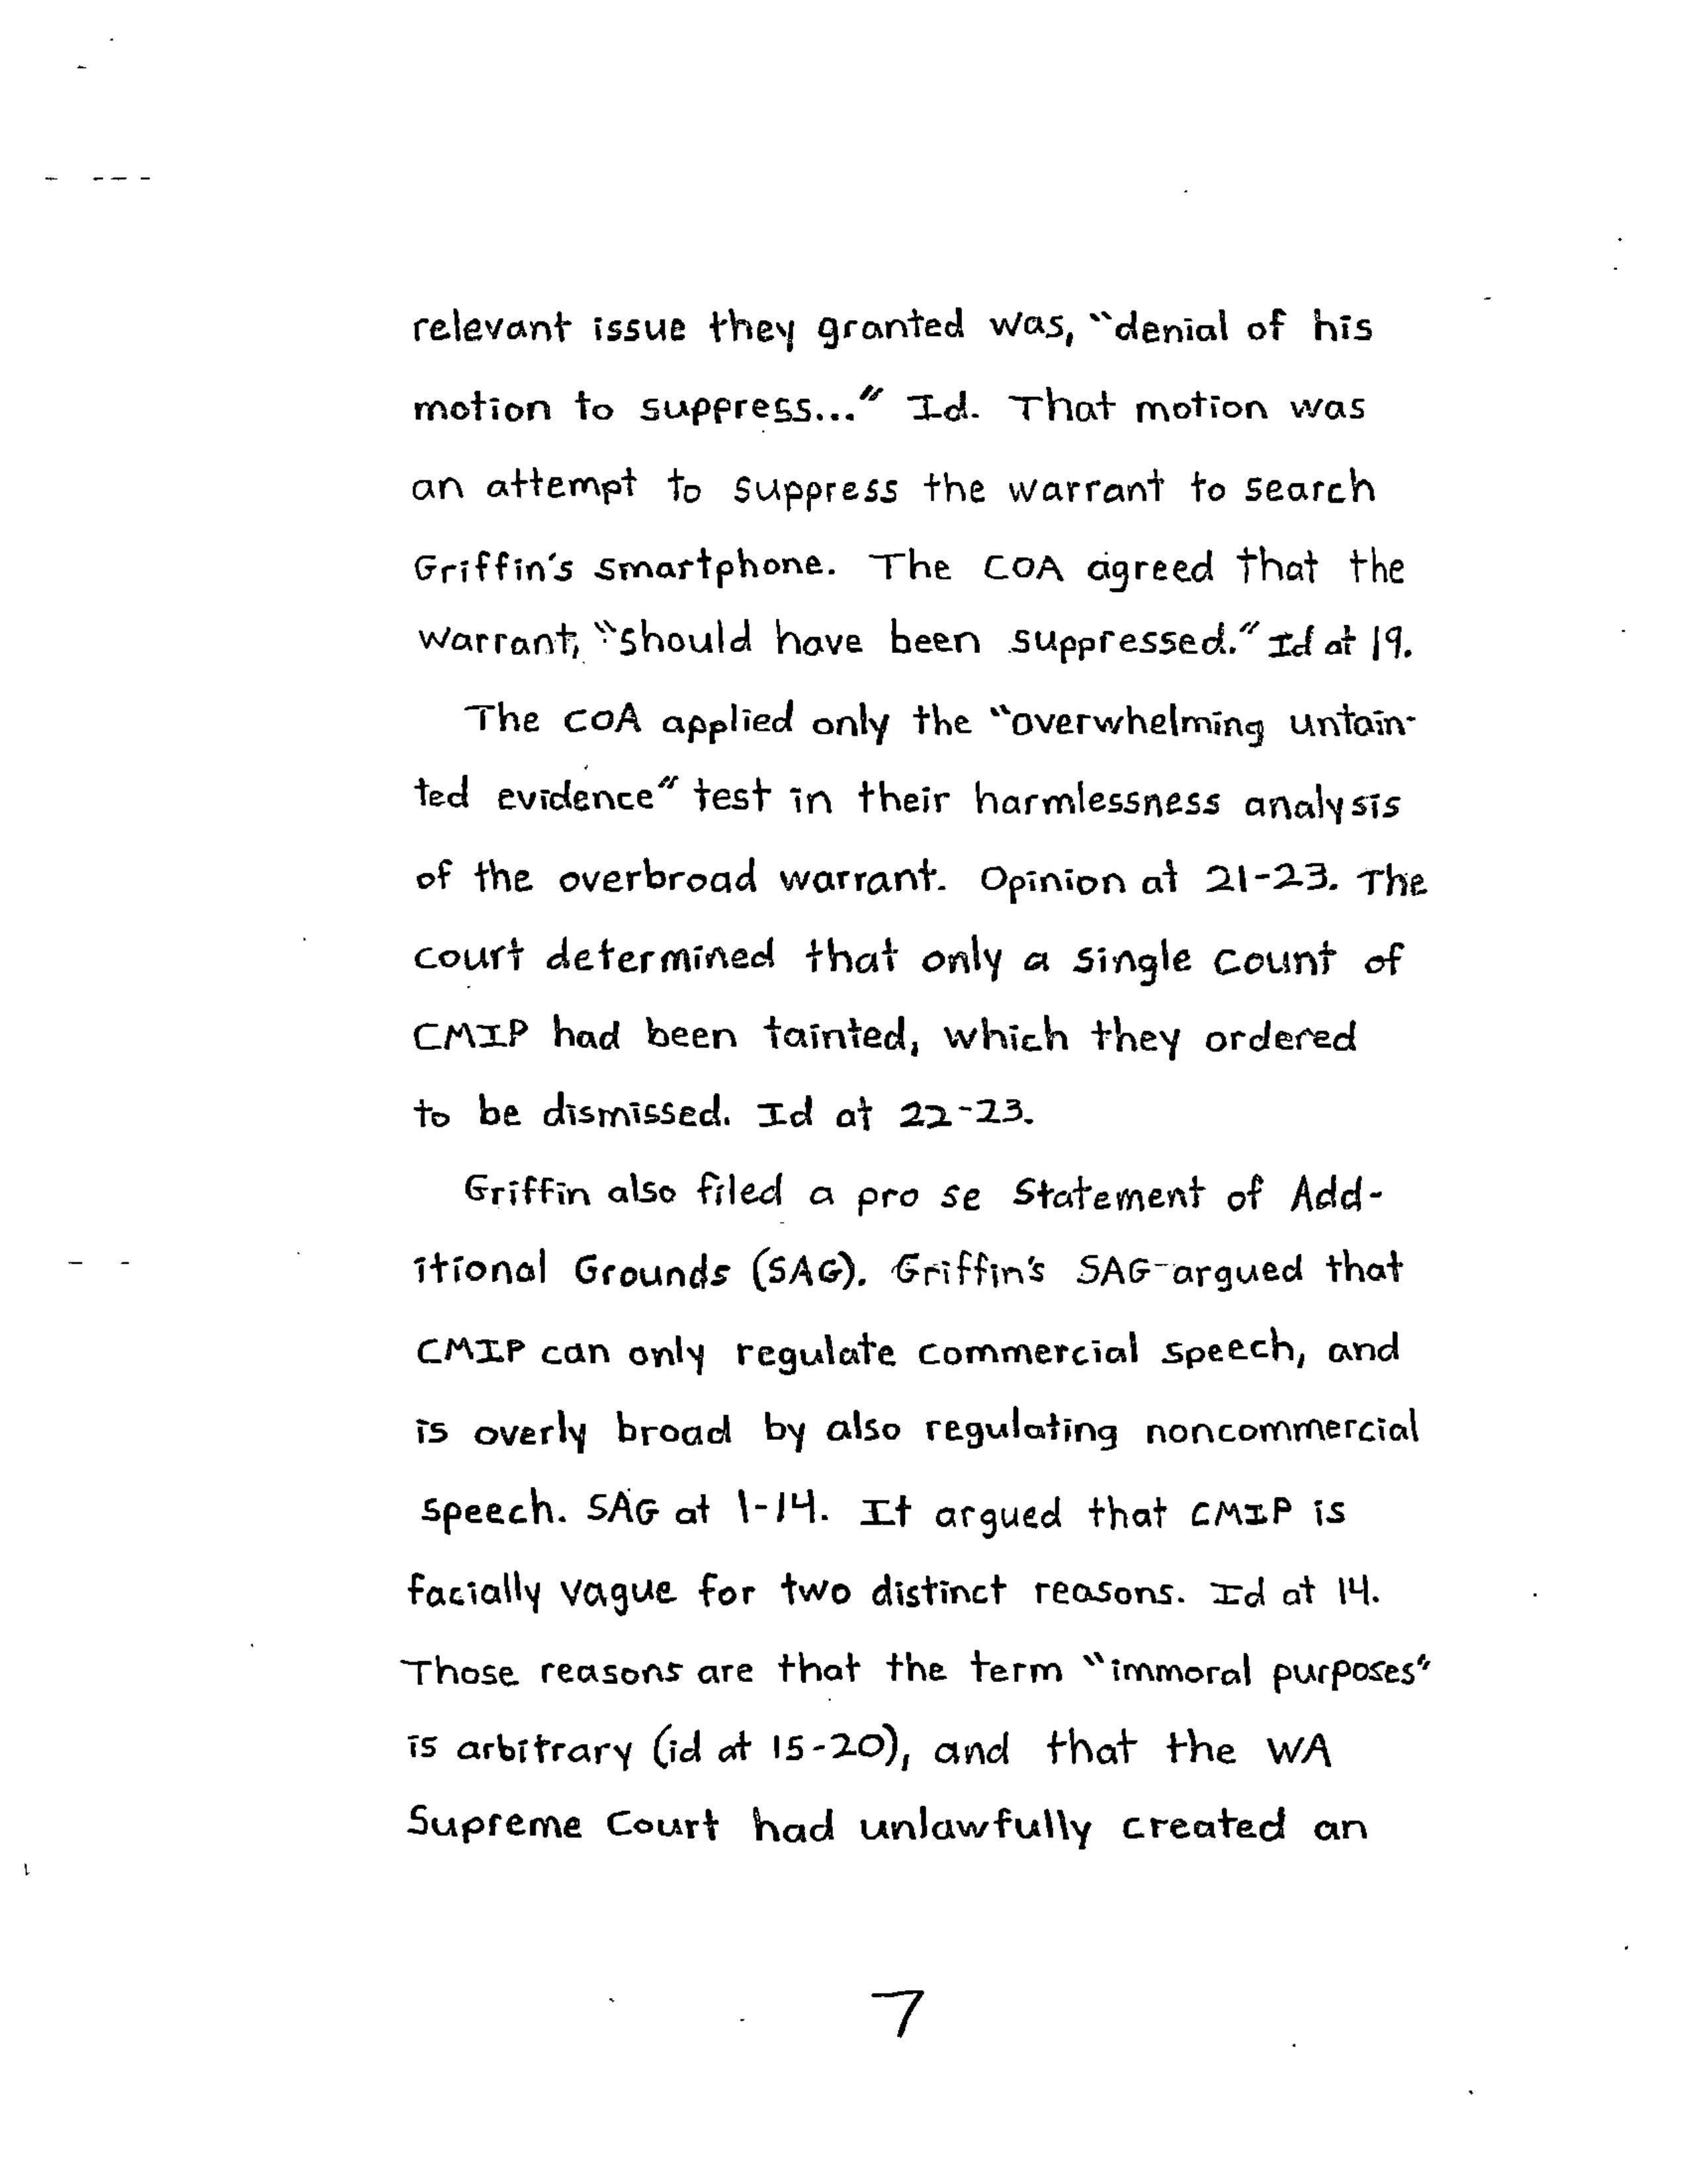 relevant issue they granted was, "denial of his
motion to suppress..." Id. That motion was
an attempt to suppress the warrant to search
Griffin's smartphone. The COA agreed that the
warrant, "should have been suppressed." Id at 19.
The COA applied only the "overwhelming untain-
ted evidence" test in their harmlessness analysis
of the overbroad warrant. Opinion at 21-23. The
court determined that only a single count of
CMIP had been tainted, which they ordered
to be dismissed. Id at 22-23.
Griffin also filed a pro se Statement of Add-
itional Grounds (SAG). Griffin's SAG argued that
CMIP can only regulate commercial speech, and
is overly broad by also regulating noncommercial
speech. SAG at 1-14. It argued that CMIP is
facially vague for two distinct reasons. Id at 14.
Those reasons are that the term "immoral purposes"
is arbitrary (id at 15-20), and that the WA
Supreme Court had unlawfully created an
7